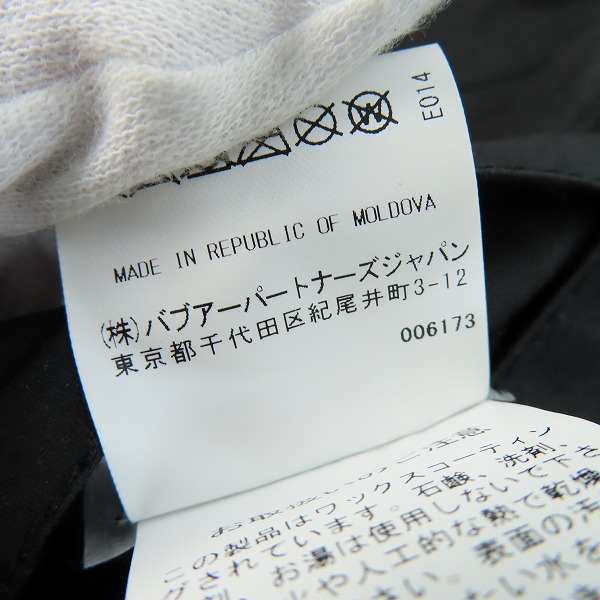 E014
MADE IN REPUBLIC OF MOLDOVA
(株)バブアーパートナーズジャパン
東京都千代田区紀尾井町3-12
006173
お取扱いのご注意
この製品はワックスコーティン
グされています。石鹸、洗剤、
剤、お湯は使用しないで下さ
や人工的な熱で乾燥
さい。表面の汚
たい水を